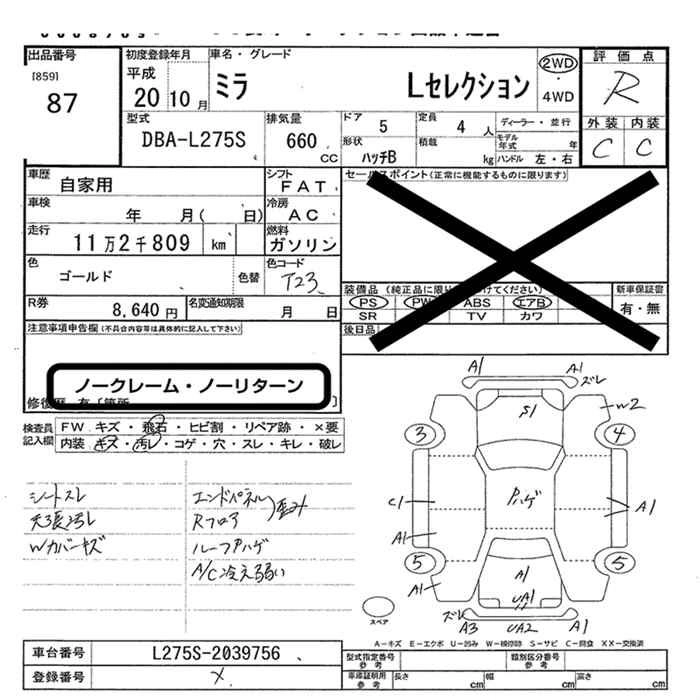 出品番号
[859]
87
初度登録年月
平成
20 10 月
車名・グレード
ミラ Lセレクション
2WD
・
4WD
評 価 点
R
外装 内装
C C
型式
DBA-L275S
排気量
660
cc
ドア 5
定員 4 人
ディーラー・並行
形状
ハッチB
積載
kg
モデル
年式 年
ハンドル 左・右
車歴
自家用
シフト
FAT
車検
年 月( 日)
冷房
AC
走行
11万2千809 km
燃料
ガソリン
色
ゴールド 色替
色コード
T23
R券
8,640 円
名変通知期限
月 日
セールスポイント(正常に機能するものに限ります)
装備品 (純正品に限り けてください)
PS PW ABS エアB
SR TV カワ
後日品
新車保証書
有・無
注意事項申告欄(不具合内容等は具体的に記入して下さい)
ノークレーム・ノーリターン
修復歴 有〔箇所 〕
検査員
記入欄
FW キズ・飛石・ヒビ割・リペア跡・×要
内装 キズ・汚レ・コゲ・穴・スレ・キレ・破レ
シートスレ
天張汚レ
Wカバーキズ
エンドパネル
Rフロア
歪み
ルーフPハゲ
A/C冷え弱い
A1 A1
ズレ
S1
W2
3 4
C1
Pハゲ
A1
A1
5 5
A1
A1
UA1
ズレ
A3 UA2 A1
スペア
A-キズ E-エクボ U-凹み W-補修跡 S-サビ C-腐食 XX-交換済
車台番号
L275S-2039756
登録番号
×
型式指定番号
参 考
類別区分番号
参 考
車庫証明用
参 考
長さ
cm
幅
cm
高さ
cm